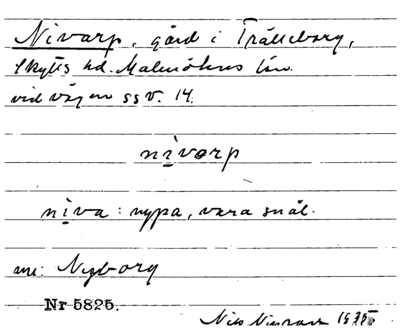 Nivarp, gård i Trälleborg,
Skytts hd. Malmöhus län.
vid vägen SSV. 14.
nivarp
niva: nypa, vara snål.
nu: Nyborg
Nr 5825.
Nils